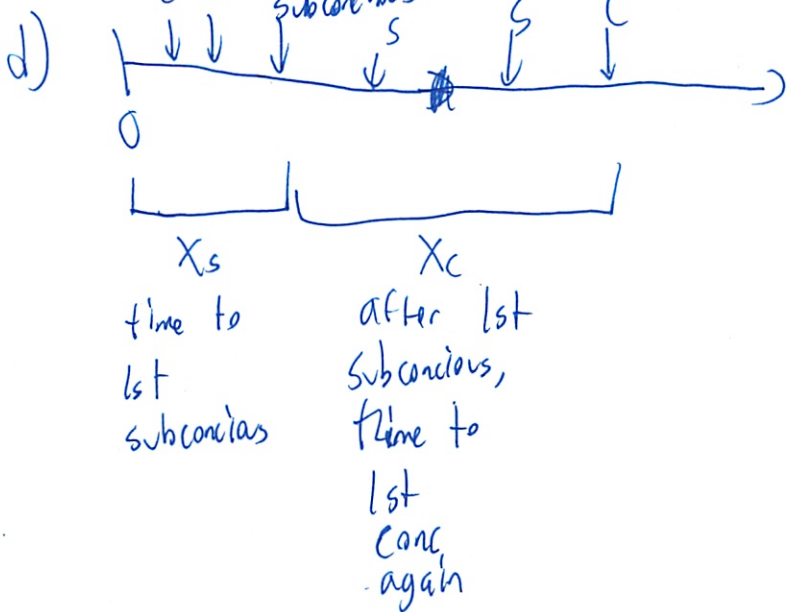 d)
S
S
C
0
Xs
time to
1st
subconcias
Xc
after 1st
subconcious,
time to
1st
conc
again